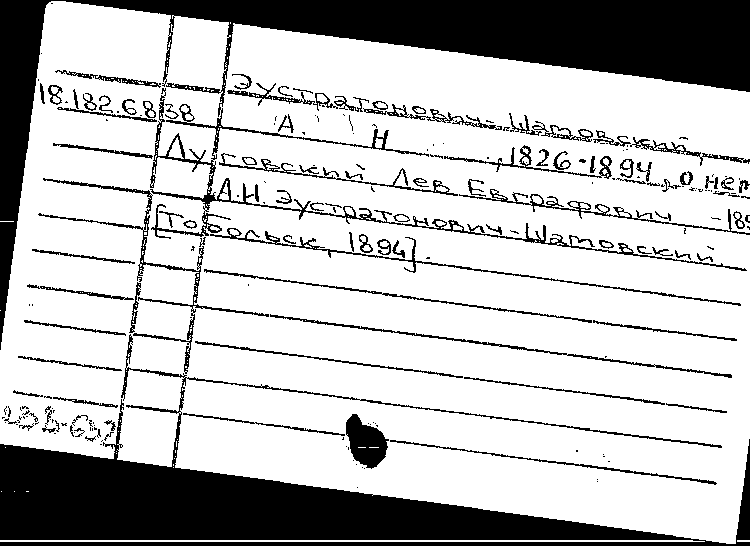 Эустратонович-Шатовский,
18.182.6838 А. Н , 1826-1894, о нем
Луговский, Лев Евграфович, -189
А.Н. Эустратонович-Шатовский.
[Тобольск, 1894].
23В-632